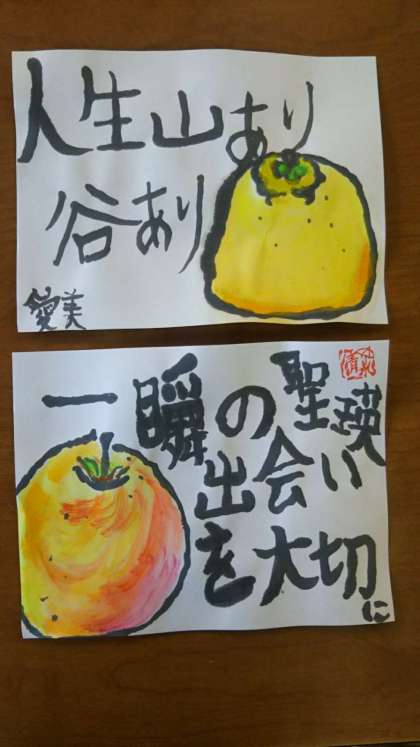 人生山あり
谷あり
愛美
一瞬の
出会い
を大切に
聖瑛